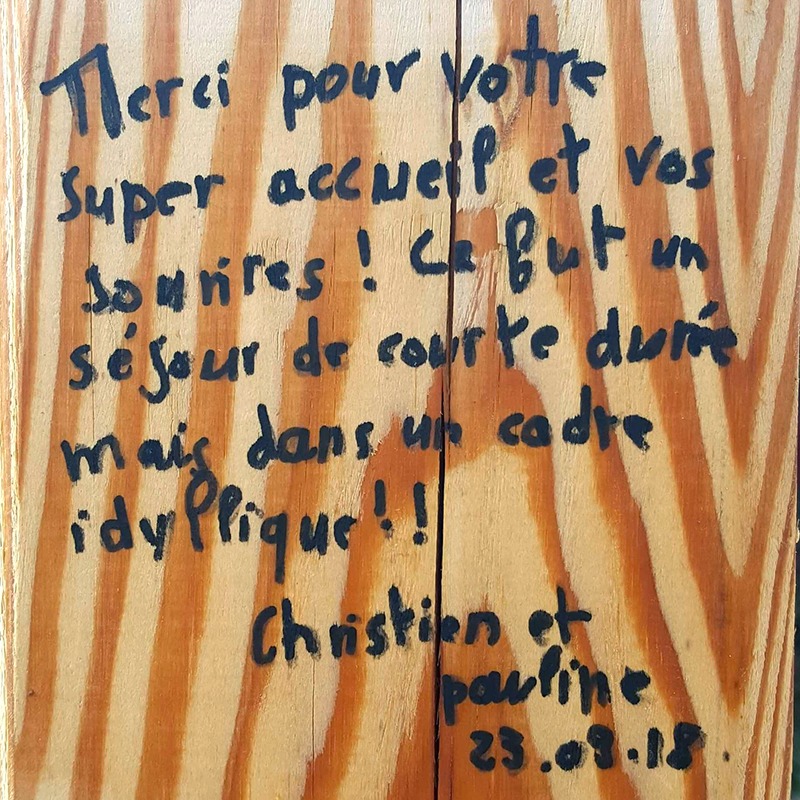 Merci pour votre
super accueil et vos
sourires ! Ce fut un
séjour de courte durée
mais dans un cadre
idyllique !!
Christien et
pauline
23.09.18.